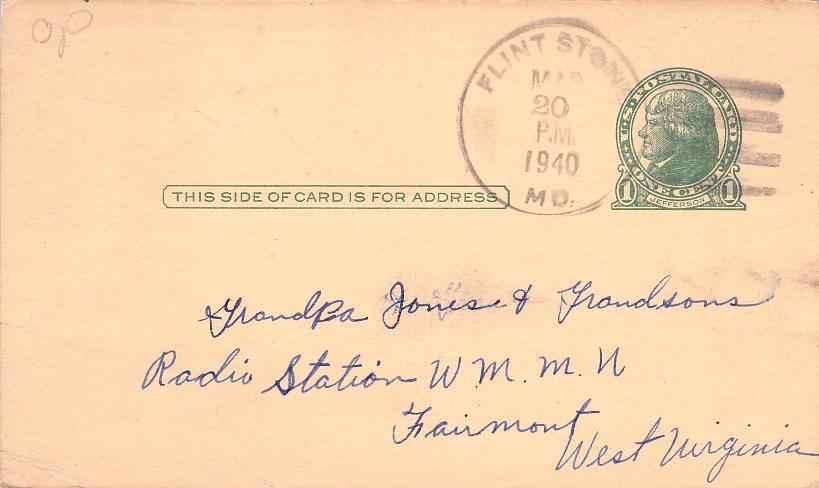 op
FLINT STONE
MAR
20
P.M.
1940
MD.
U.S. POSTAL CARD
ONE CENT
1 JEFFERSON 1
THIS SIDE OF CARD IS FOR ADDRESS
Grandpa Jones & Grandsons
Radio Station W M. M. N
Fairmont
West Virginia